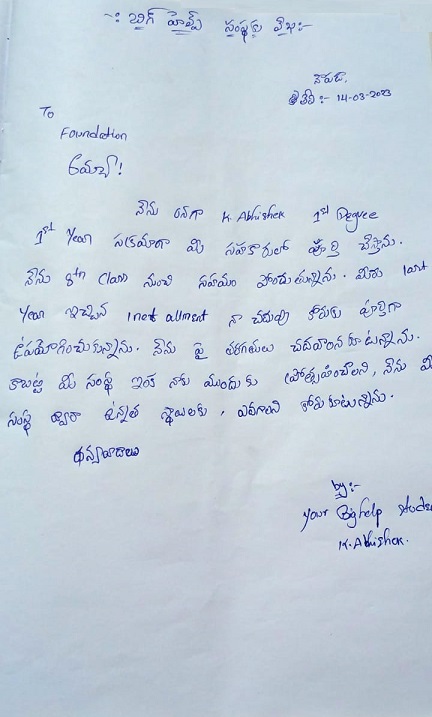 -: బిగ్ హెల్ప్ సంస్థకు లేఖ:-
తేది:- 14-03-2023
To
Foundation
అమ్మా!
నేను అనగా K. Abhishek 1st Degree
1st Year సక్రమంగా మీ సహకారంలో పూర్తి చేస్తాను.
నేను 8th Class నుంచి సహయం పొందుతున్నాను. మీరు last
Year ఇచ్చిన inst allment నా చదువు కొరుకు పూర్తిగా
ఉపయోగించుకున్నాను. నేను పై తరగతులు చదవాలనుకుంటున్నాను.
కాబట్టి మీ సంస్థ ఇంక నాకు ముందుకు ప్రోత్సహించాలని, నేను మీ
సంస్థ ద్వారా ఉన్నత స్థాయిలకు, ఎదగాలని కోరుకుంటున్నాను.
ధన్యవాదాలు
by:-
your Bighelp stude
K. Abhishek.